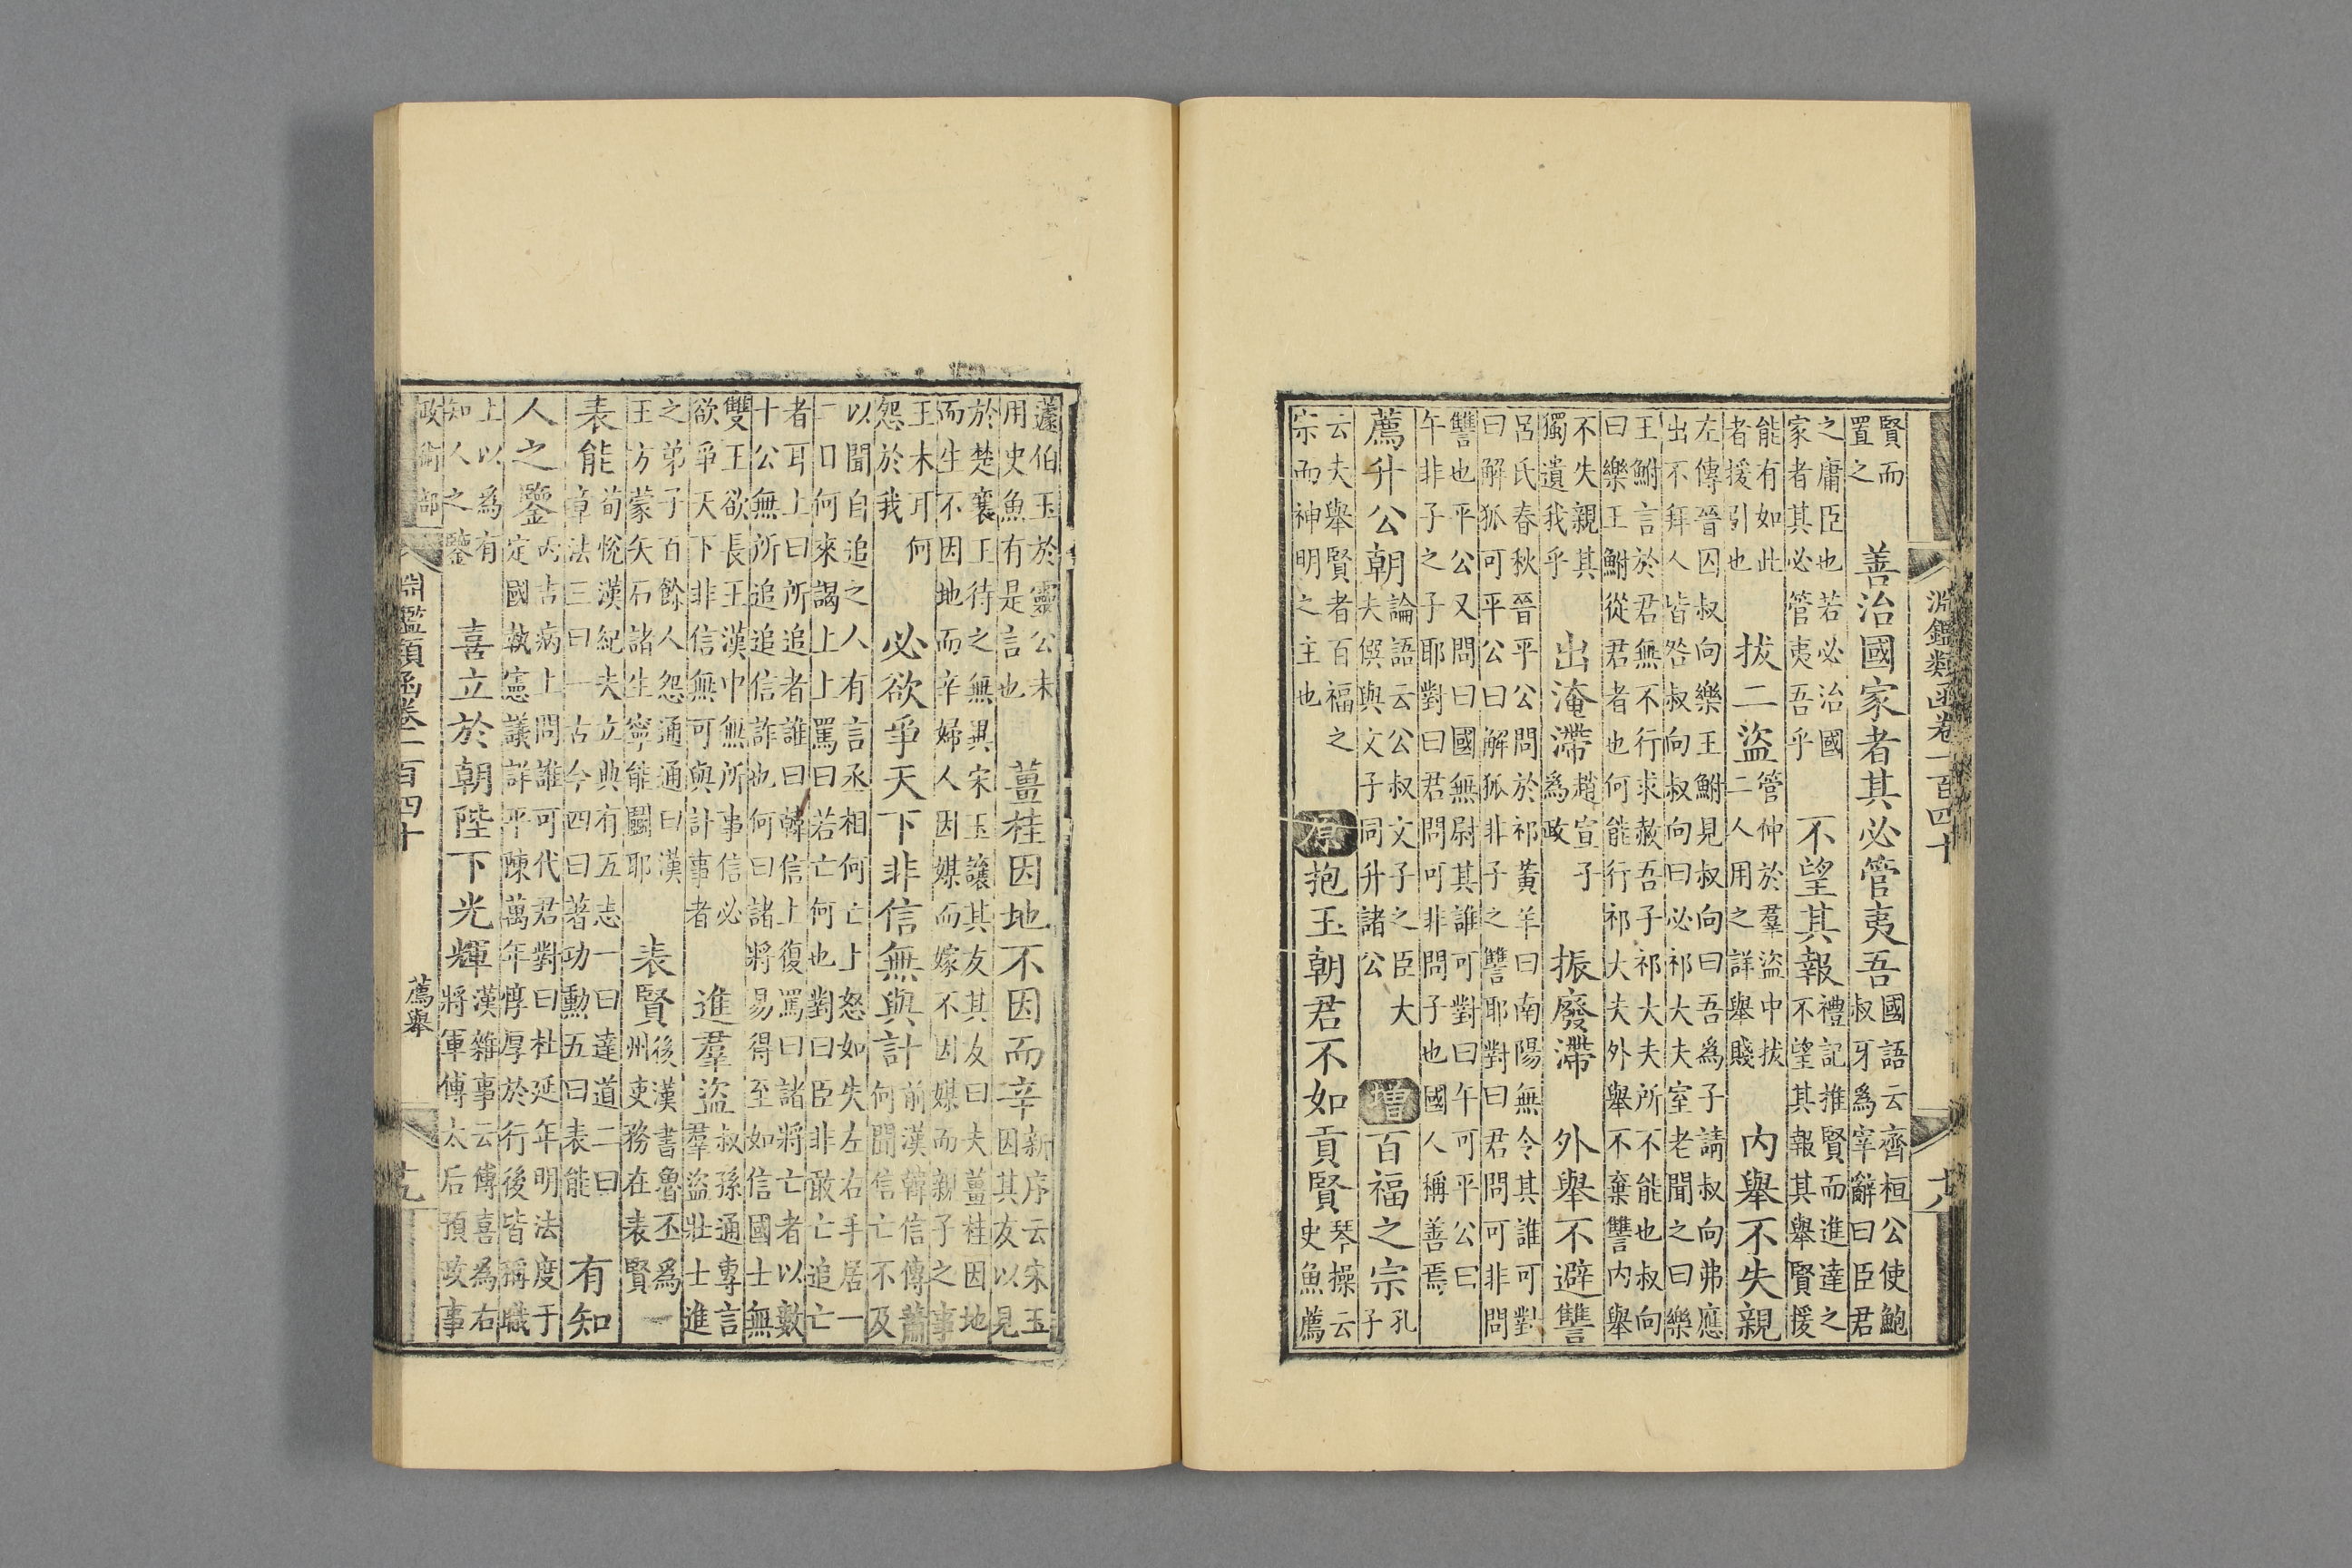 淵鑑類函卷一百四十
十八
賢而
置之
善治國家者其必管夷吾
國語云齊桓公使鮑
叔牙爲宰辭曰臣君
之庸臣也若必治國
家者其必管夷吾乎
不望其報
禮記推賢而進達之
不望其報其舉賢援
能有如此
者援引也
拔二盜
管仲於羣盜中拔
二人用之詳舉賤
內舉不失親
左傳晉囚叔向樂王鮒見叔向曰吾爲子請叔向弗應
出不拜人皆咎叔向叔向曰必祁大夫室老聞之曰樂
王鮒言於君無不行求赦吾子祁大夫所不能也叔向
曰樂王鮒從君者也何能行祁大夫外舉不棄讐內舉
不失親其
獨遺我乎
出淹滯
趙宣子
爲政
振廢滯
外舉不避讐
呂氏春秋晉平公問於祁黃羊曰南陽無令其誰可對
曰解狐可平公曰解狐非子之讐耶對曰君問可非問
讐也平公又問曰國無尉其誰可對曰午可平公曰
午非子之子耶對曰君問可非問子也國人稱善焉
薦升公朝
論語云公叔文子之臣大
夫僎與文子同升諸公
增
百福之宗
孔
子
云夫舉賢者百福之
宗而神明之主也
原
抱玉朝君不如貢賢
琴操云
史魚薦
蘧伯玉於靈公未
用史魚有是言也
薑桂因地不因而辛
新序云宋玉
因其友以見
於楚襄王待之無異宋玉讓其友其友曰夫薑桂因地
而生不因地而辛婦人因媒而嫁不因媒而親子之事
王未可何
怨於我
必欲爭天下非信無與計
前漢韓信傳蕭
何聞信亡不及
以聞自追之人有言丞相何亡上怒如失左右手居一
二日何來謁上上罵曰若亡何也對曰臣非敢亡追亡
者耳上曰所追者誰曰韓信上復罵曰諸將亡者以數
十公無所追追信詐也何曰諸將易得至如信國士無
雙王欲長王漢中無所事信必
欲爭天下非信無可與計事者
進羣盜
叔孫通專言
羣盜壯士進
之弟子百餘人怨通通曰漢
王方蒙矢石諸生寧能鬭耶
表賢
後漢書魯丕爲
州吏務在表賢
一
表能
荀悅漢紀夫立典有五志一曰達道二曰
章法三曰古今四曰著功勳五曰表能
有知
人之鑒
丙吉病上問誰可代君對曰杜延年明法度于
定國執憲議詳平陳萬年惇厚於行後皆稱職
上以爲有
知人之鑒
喜立於朝陛下光輝
漢雜事云傅喜爲右
將軍傅太后預政事
政術部
淵鑑類函卷一百四十
薦舉
十九